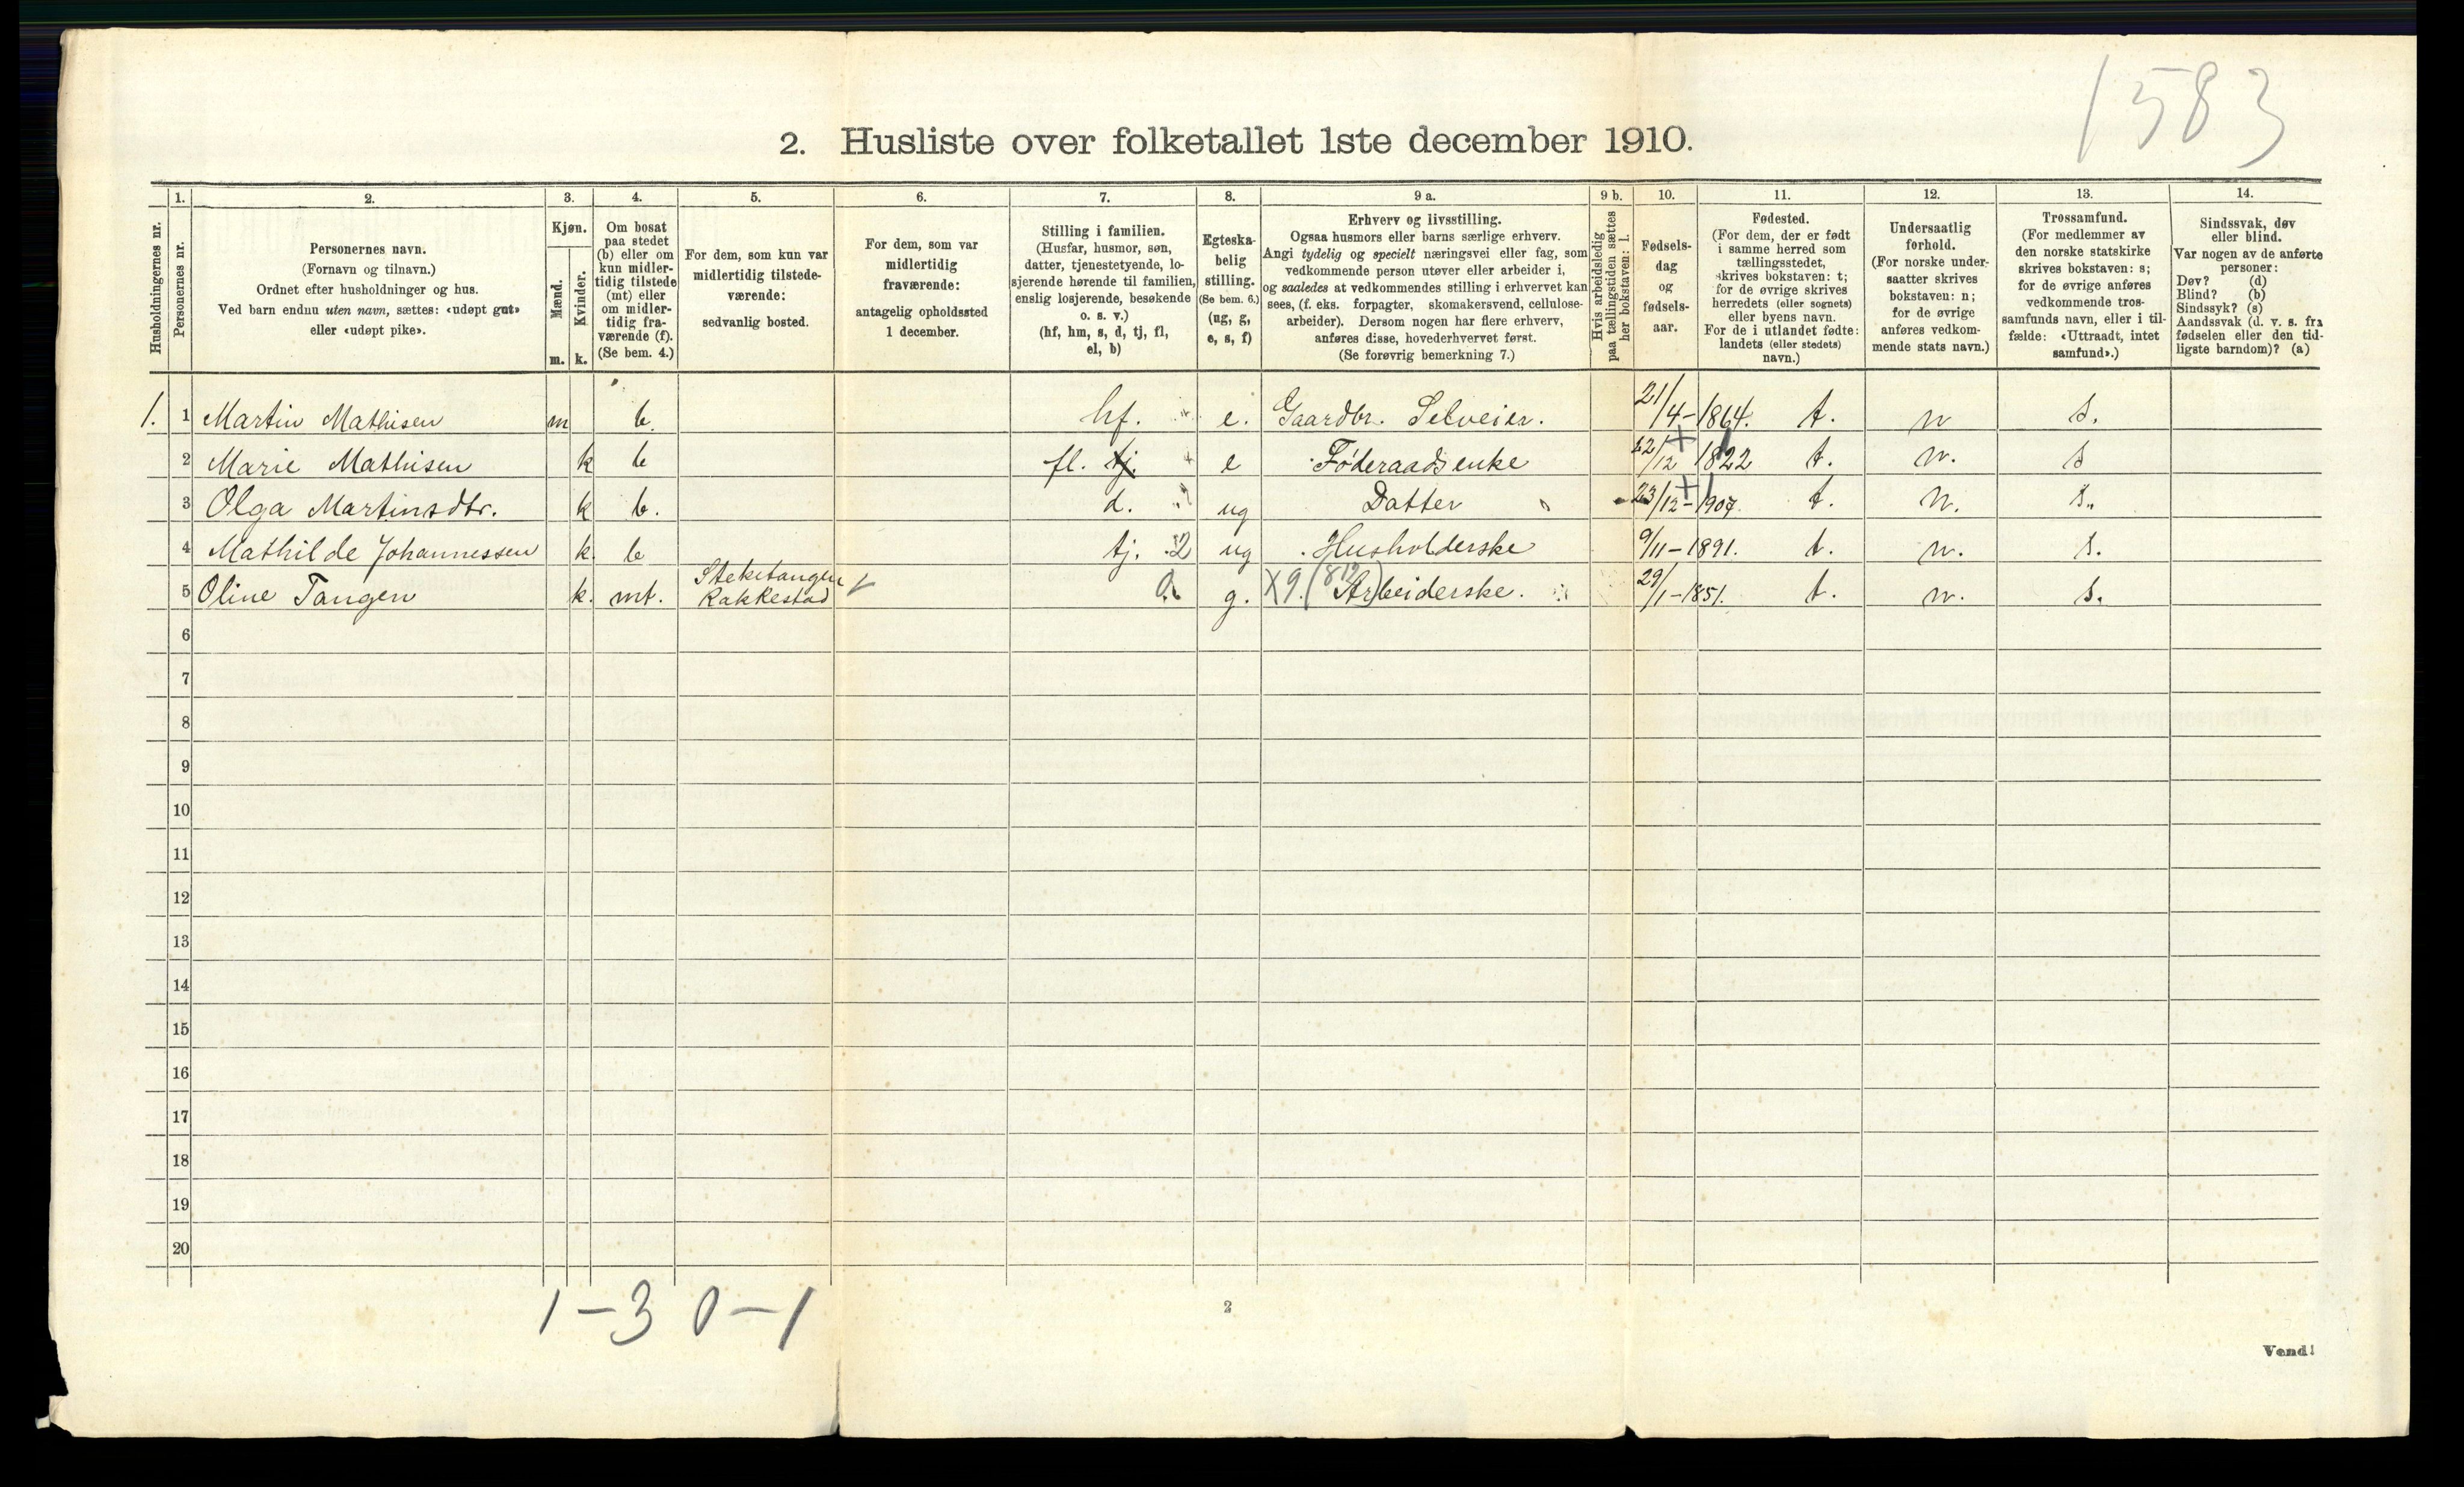 1583
2. Husliste over folketallet 1ste december 1910.
Husholdningernes nr.
1.
Personernes nr.
2.
Personernes navn.
(Fornavn og tilnavn.)
Ordnet efter husholdninger og hus.
Ved barn endnu uten navn, sættes: «udøpt gut»
eller «udøpt pike».
3.
Kjøn.
Mænd.
Kvinder.
m. k.
4.
Om bosat
paa stedet
(b) eller om
kun midler-
tidig tilstede
(mt) eller
om midler-
tidig fra-
værende (f).
(Se bem. 4.)
5.
For dem, som kun var
midlertidig tilstede-
værende:
sedvanlig bosted.
6.
For dem, som var
midlertidig
fraværende:
antagelig opholdssted
1 december.
7.
Stilling i familien.
(Husfar, husmor, søn,
datter, tjenestetyende, lo-
sjerende hørende til familien,
enslig losjerende, besøkende
o. s. v.)
(hf, hm, s, d, tj, fl,
el, b)
8.
Egteska-
belig
stilling.
(Se bem. 6.)
(ug, g,
e, s, f)
9 a.
Erhverv og livsstilling.
Ogsaa husmors eller barns særlige erhverv.
Angi tydelig og specielt næringsvei eller fag, som
vedkommende person utøver eller arbeider i,
og saaledes at vedkommendes stilling i erhvervet kan
sees, (f. eks. forpagter, skomakersvend, cellulose-
arbeider). Dersom nogen har flere erhverv,
anføres disse, hovederhvervet først.
(Se forøvrig bemerkning 7.)
9 b.
Hvis arbeidsledig
paa tællingstiden sættes
her bokstaven: l.
10.
Fødsels-
dag
og
fødsels-
aar.
11.
Fødested.
(For dem, der er født
i samme herred som
tællingsstedet,
skrives bokstaven: t;
for de øvrige skrives
herredets (eller sognets)
eller byens navn.
For de i utlandet fødte:
landets (eller stedets)
navn.)
12.
Undersaatlig
forhold.
(For norske under-
saatter skrives
bokstaven: n;
for de øvrige
anføres vedkom-
mende stats navn.)
13.
Trossamfund.
(For medlemmer av
den norske statskirke
skrives bokstaven: s;
for de øvrige anføres
vedkommende tros-
samfunds navn, eller i til-
fælde: «Uttraadt, intet
samfund».)
14.
Sindssvak, døv
eller blind.
Var nogen av de anførte
personer:
Døv? (d)
Blind? (b)
Sindssyk? (s)
Aandssvak (d. v. s. fra
fødselen eller den tid-
ligste barndom)? (a)
1. 1 Martin Mathisen m b. hf. e. Gaardbr. Selveier. 21/4-1864. t. n s.
2 Marie Mathisen k b fl. tj. e Føderaadsenke 22/12 1822 t. n. s
3 Olga Martinsdtr. k b. d. ug Datter 23/12-1907. t. n. s.
4 Mathilde Johannessen k. b tj. 2 ug Husholderske 9/11-1891. t. n. s.
5 Oline Tangen k. mt. Steketangen Rakkestad g. X9. (812) Arbeiderske. 29/1-1851. t. n. s.
6
7
8
9
10
11
12
13
14
15
16
17
18
19
20
1-3 0-1
2
Vend!